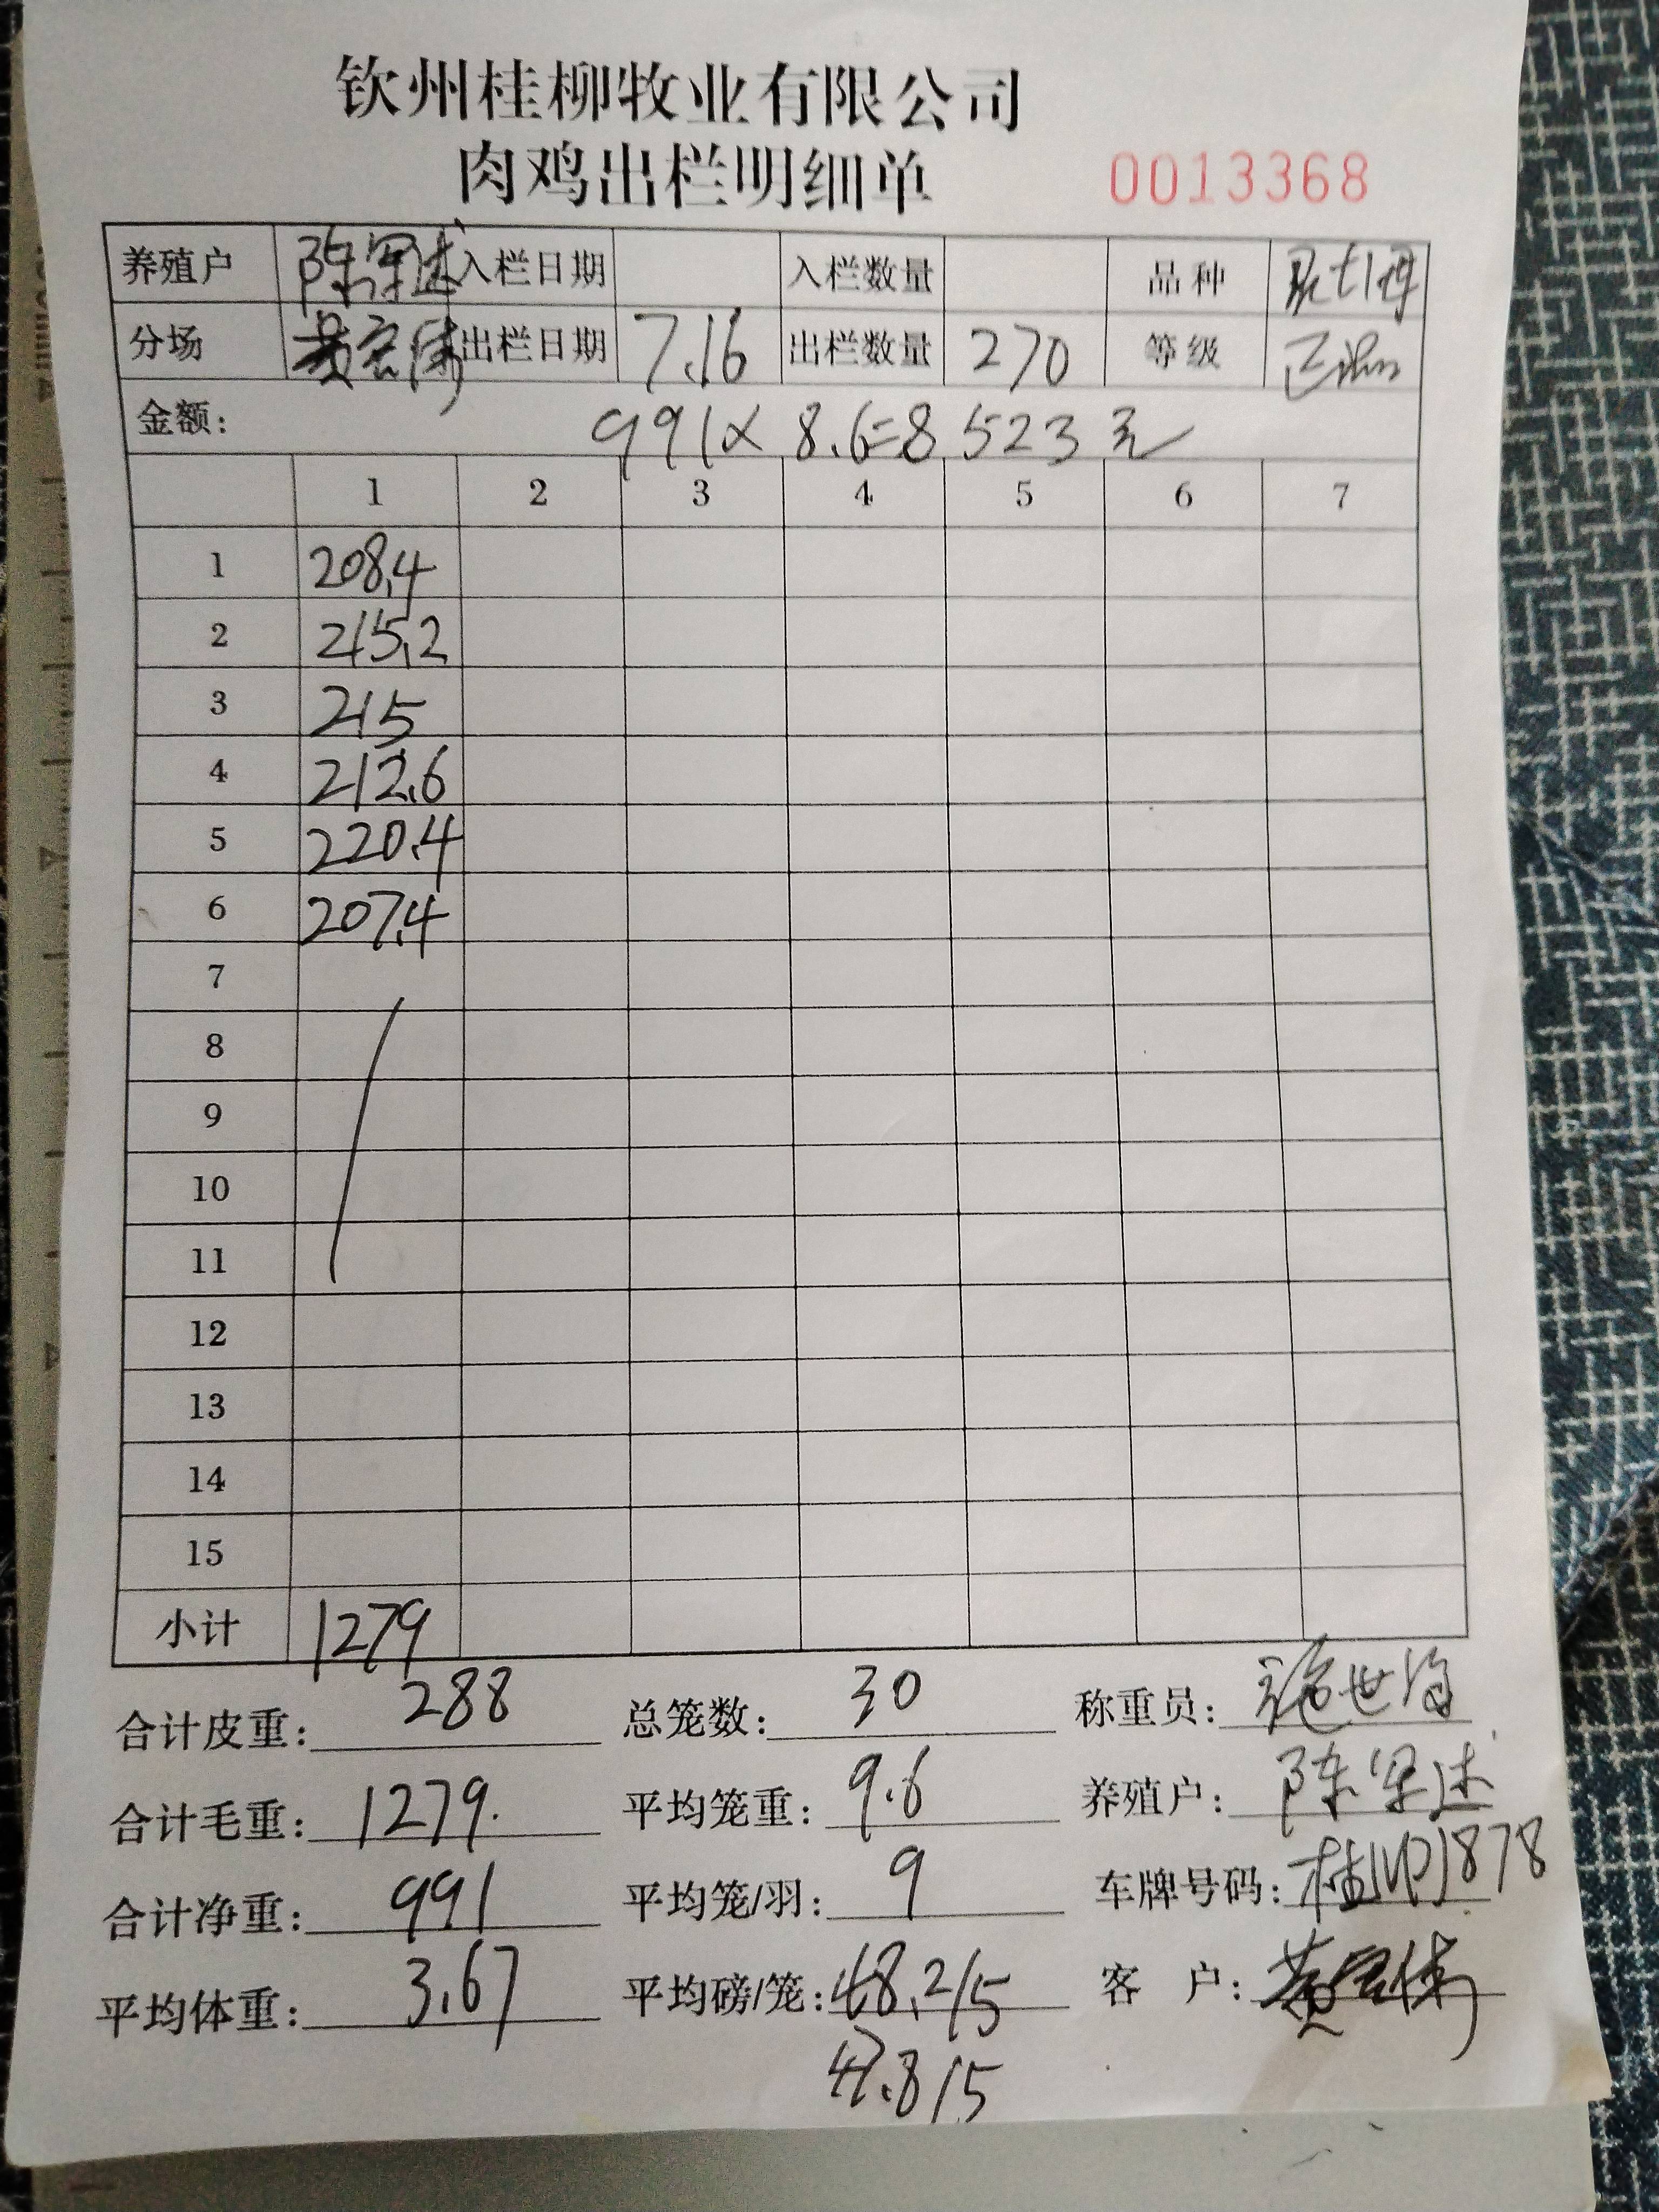 钦州桂柳牧业有限公司
肉鸡出栏明细单 0013368
养殖户 陈 入栏日期 入栏数量 品种
分场 黄 出栏日期 7.16 出栏数量 270 等级 正
金额: 991× 8.6=8523元
1 2 3 4 5 6 7
1 208.4
2 215.2
3 215
4 212.6
5 220.4
6 207.4
7
8
9
10
11
12
13
14
15
小计 1279
合计皮重: 288 总笼数: 30 称重员: 施世海
合计毛重: 1279. 平均笼重: 9.6 养殖户: 陈
合计净重: 991 平均笼/羽: 9 车牌号码: 桂 1878
平均体重: 3.67 平均磅/笼: 48.2/5 客 户: 黄
47.8/5